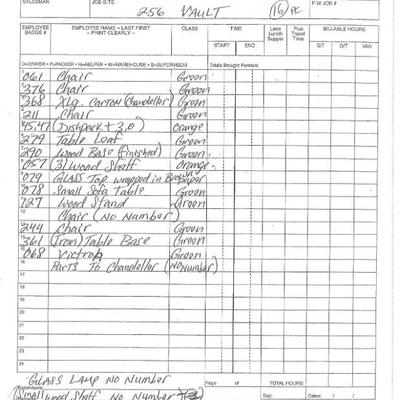 SALESMAN JOB SITE F-W JOB #
256 VAULT (16) PC.
EMPLOYEE BADGE # EMPLOYEE NAME - LAST FIRST - PRINT CLEARLY - CLASS TIME Less Lunch Supper Plus Travel Time BILLABLE HOURS
START END S/T O/T VAN
D=DRIVER P=PACKER H=HELPER W=WAREHOUSE S=SUPERVISOR Totals Brought Forward
'061 Chair Green
'376 Chair Green
'368 Xlg. Carton (Chandelier) Green
'211 Chair Green
'45.47 (Dishpack + 3.0) Orange
'279 Table Leaf Green
'290 Wood Base (finished) Green
'057 (3) Wood Shelf Orange
'079 GLASS Top wrapped in Brown Paper
'078 Small Sofa Table Green
'127 Wood Stand Green
Chair (No Number)
244 Chair Green
361 (Iron) Table Base Green
'068 Victrola Green
Parts To Chandelier (No Number)
GLASS LAMP NO NUMBER
Page of TOTAL HOURS
(Small wood Shelf No Number
Day: Dates: / /